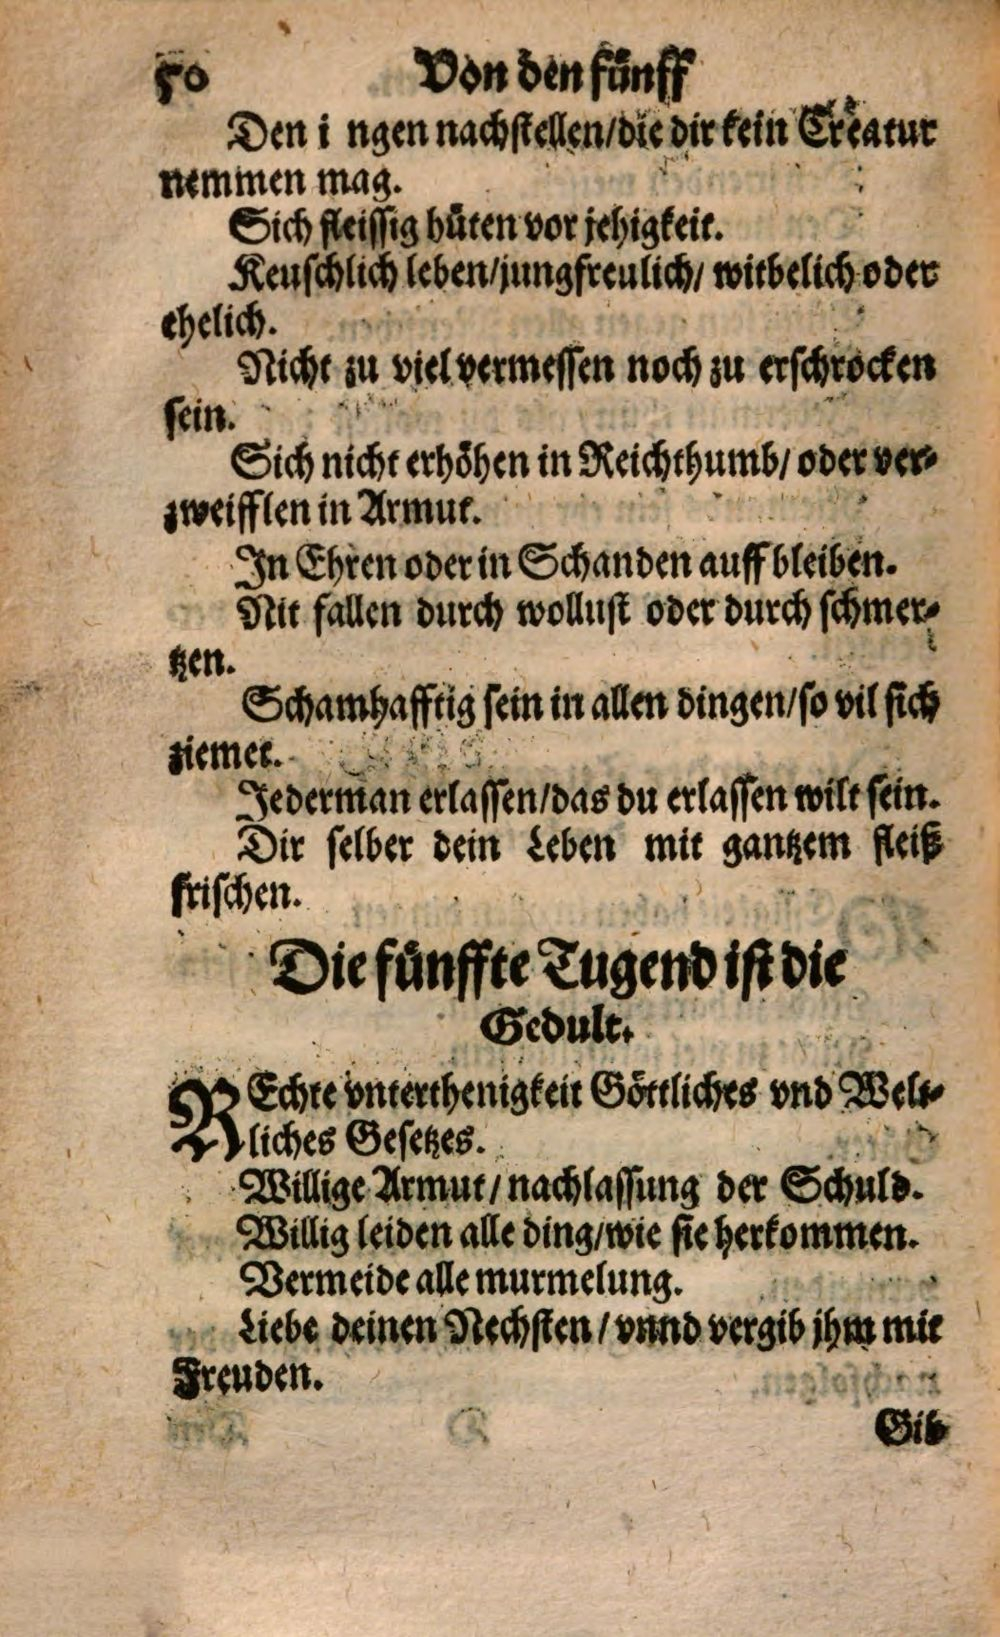 50 Von den fünff
Den i ngen nachstellen/die dir kein Creatur
nemmen mag.
Sich fleissig hüten vor jehigkeit.
Keuschlich leben/jungfreulich/ witbelich oder
ehelich.
Nicht zu viel vermessen noch zu erschrocken
sein.
Sich nicht erhöhen in Reichthumb/ oder ver-
zweifflen in Armut.
In Ehren oder in Schanden auff bleiben.
Nit fallen durch wollust oder durch schmer-
tzen.
Schamhafftig sein in allen dingen/so vil sich
ziemet.
Jederman erlassen/das du erlassen wilt sein.
Dir selber dein Leben mit gantzem fleiß
frischen.
Die fünffte Tugend ist die
Gedult.
REchte vnterthenigkeit Göttliches vnd Welt-
liches Gesetzes.
Willige Armut/ nachlassung der Schuld.
Willig leiden alle ding/wie sie herkommen.
Vermeide alle murmelung.
Liebe deinen Nechsten/ vnnd vergib jhm mit
Freuden.
Gib